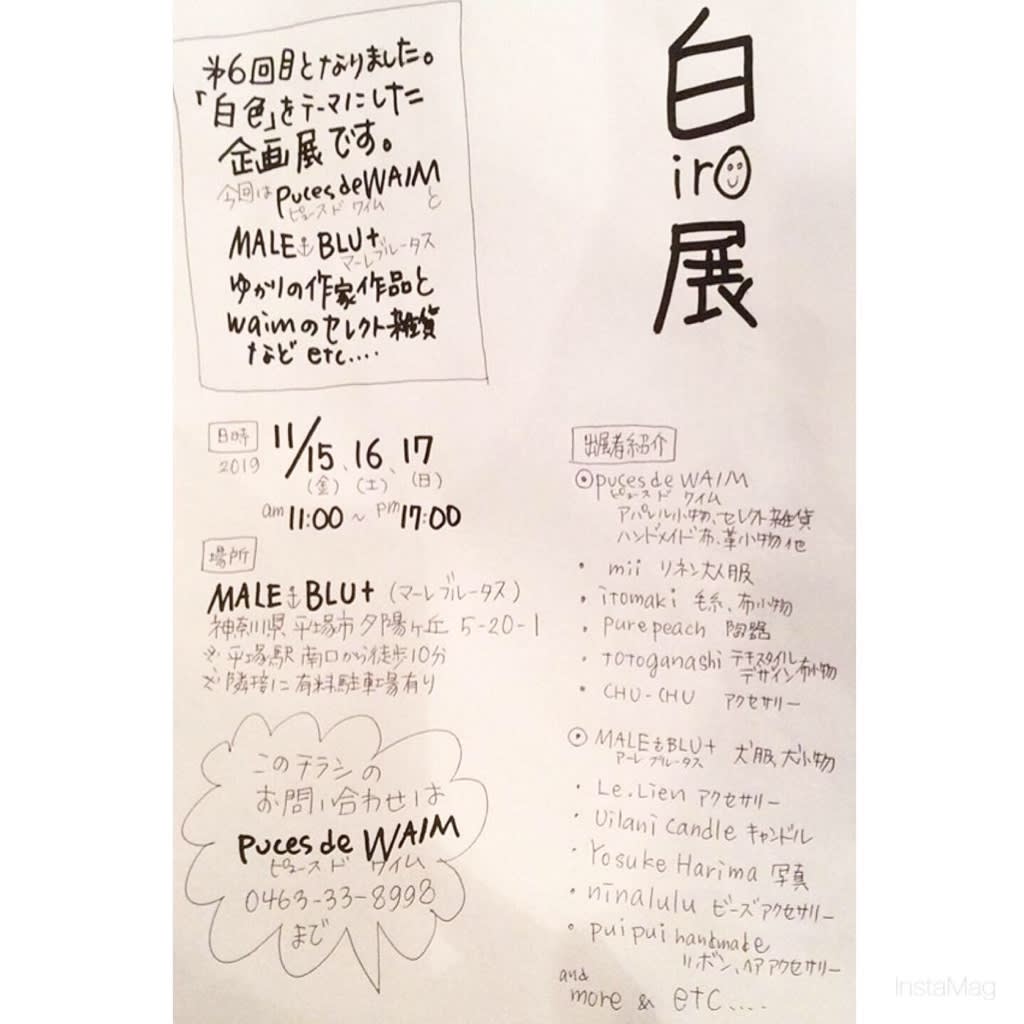 白
iro
展
第6回目となりました。
「白色」をテーマにした
企画展です。
今回は puces de WAIM と
ピュース ド ワイム
MALE BLU+
マーレブルータス
ゆかりの作家作品と
waimのセレクト雑貨
など etc....
日時
2019
11/15、16、17
(金) (土) (日)
am 11:00 ~ pm 17:00
場所
MALE BLU+ (マーレブルータス)
神奈川県 平塚市 夕陽ヶ丘 5-20-1
※ 平塚駅 南口から徒歩10分
※ 隣接に 有料駐車場有り
このチラシの
お問い合わせは
puces de WAIM
ピュース ド ワイム
0463-33-8998
まで
出展者紹介
◉puces de WAIM
ピュース ド ワイム
アパレル小物、セレクト雑貨
ハンドメイド布、革小物他
・ mii リネン大人服
・ itomaki 毛糸、布小物
・ pure peach 陶器
・ totoganashi テキスタイル
デザイン布小物
・ CHU-CHU アクセサリー
◉ MALE BLU+ 犬服、犬小物
マーレ ブルータス
・ Le.Lien アクセサリー
・ Uilani candle キャンドル
・ Yosuke Harima 写真
・ ninalulu ビーズアクセサリー
・ puipui handmade
リボン、ヘアアクセサリー
and
more & etc....
InstaMag